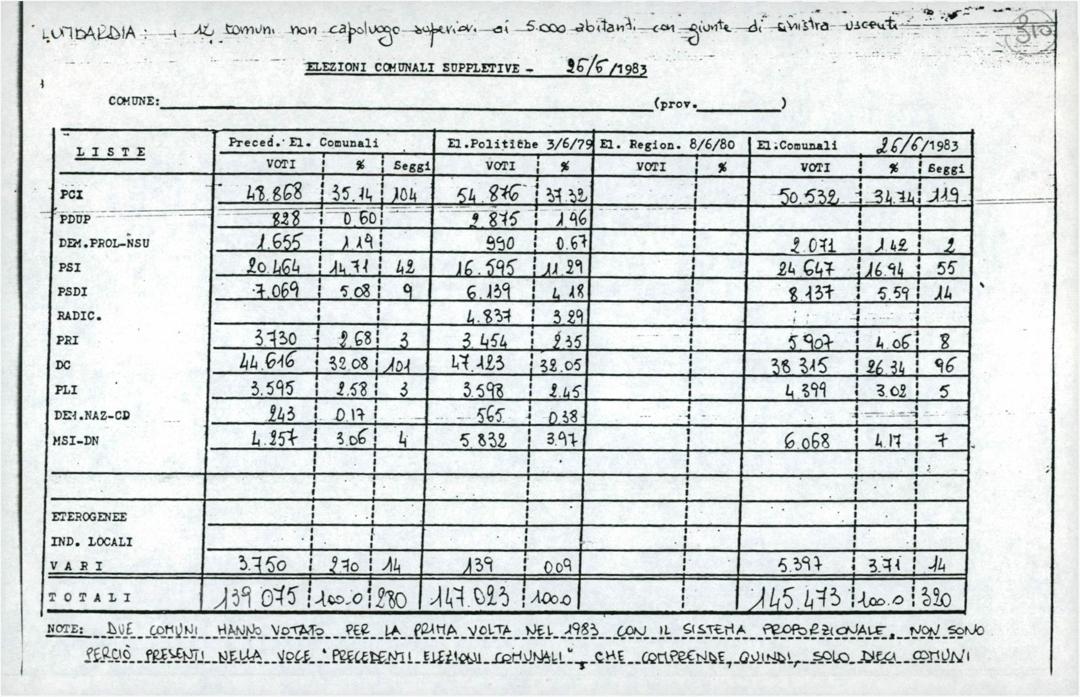 LOMBARDIA: i 12 comuni non capoluogo superiori ai 5.000 abitanti con giunte di sinistra uscenti
310
ELEZIONI COMUNALI SUPPLETIVE - 26/6/1983
COMUNE: (prov. )
LISTE Preced. El. Comunali El.Politiche 3/6/79 El. Region. 8/6/80 El.Comunali 26/6/1983
VOTI % Seggi VOTI % VOTI % VOTI % Seggi
PCI 48.868 35.14 104 54.876 37.32 50.532 34.74 119
PDUP 828 0.60 2.875 1.96
DEM.PROL-NSU 1.655 1.19 990 0.67 2.071 1.42 2
PSI 20.464 14.71 42 16.595 11.29 24.647 16.94 55
PSDI 7.069 5.08 9 6.139 4.18 8.137 5.59 14
RADIC. 4.837 3.29
PRI 3730 2.68 3 3.454 2.35 5.907 4.06 8
DC 44.616 32.08 101 47.123 32.05 38.315 26.34 96
PLI 3.595 2.58 3 3.598 2.45 4.399 3.02 5
DEM.NAZ-CD 243 0.17 565 0.38
MSI-DN 4.257 3.06 4 5.832 3.97 6.068 4.17 7
ETEROGENEE
IND. LOCALI
VARI 3.750 2.70 14 139 0.09 5.397 3.71 14
TOTALI 139.075 100.0 280 147.023 100.0 145.473 100.0 320
NOTE: DUE COMUNI HANNO VOTATO PER LA PRIMA VOLTA NEL 1983 CON IL SISTEMA PROPORZIONALE. NON SONO
PERCIÒ PRESENTI NELLA VOCE "PRECEDENTI ELEZIONI COMUNALI", CHE COMPRENDE, QUINDI, SOLO DIECI COMUNI